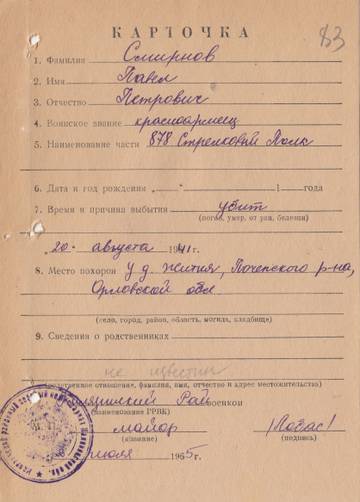 83
КАРТОЧКА
1. Фамилия Смирнов
2. Имя Павел
3. Отчество Петрович
4. Воинское звание красноармеец
5. Наименование части 878 Стрелковый Полк
6. Дата и год рождения „ “ 1 года
7. Время и причина выбытия убит
(погиб, умер, от ран, болезни)
„20“ августа 1941 г.
8. Место похорон у д. Жития, Почепского р-на,
Орловской обл.
(село, город, район, область, могила, кладбище)
9. Сведения о родственниках
не известны
(родственное отношение, фамилия, имя, отчество и адрес местожительства)
Рай военком
(наименование ГРВК)
майор
(звание) (подпись)
июля 1965 г.